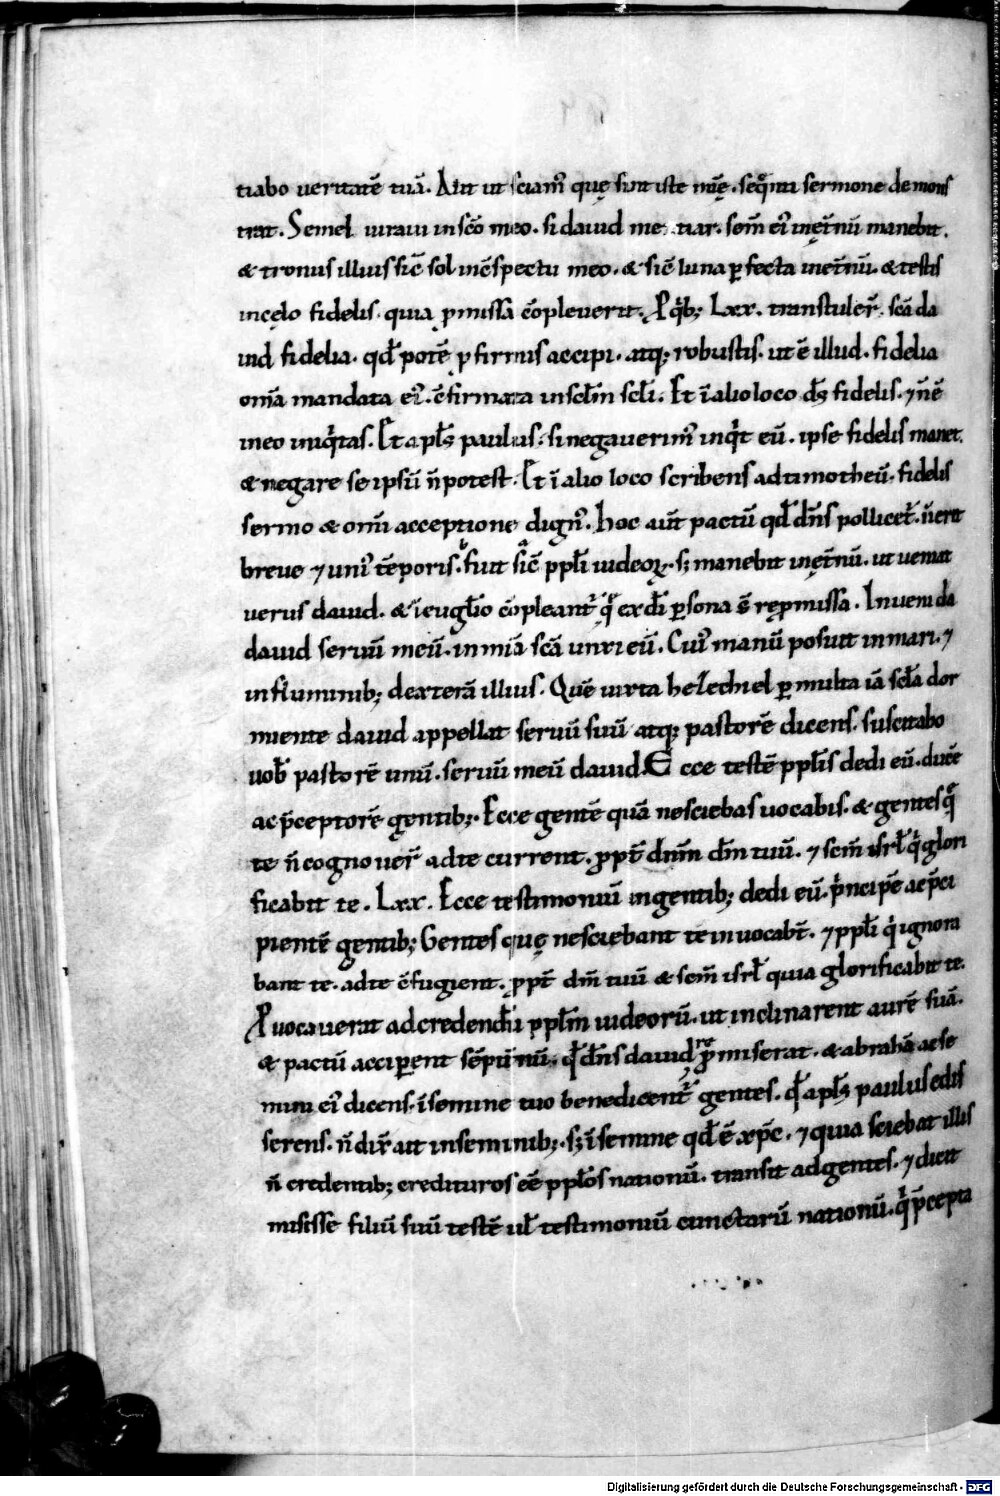 tiabo ueritatē tuā. Aut ut sciam᷒ quę sunt iste mię. seq̊nti sermone demons
trat. Semel iuraui in sc̄o meo. si dauid me tiar. sem̄ ei᷒ inęt̄nū manebit.
& tronus illius sic̄ sol in c̄spectu meo. & sic̄ luna ꝑfecta inet̄nū. & testis
in cęlo fidelis. quia ꝓmissa c̄opleuerit. Ꝓ qͥb; Lxx. transtuler̄. sc̄a da
uid fidelia. qđ potē ꝓ firmis accipi. atq; robustis. ut ē illud. fidelia
om̄a mandata ei᷒. c̄firmata in sc̄lm sc̄li. Et ī alio loco ds̄ fidelis. ⁊ n̄ ē
in eo iniqͥtas. Et apls̄ paulus. si negauerim᷒ inqͥt eū. ipse fidelis manet.
& negare se ipsū n̄ potest. Et ī alio loco scribens ad timotheū. fidelis
sermo & om̄i acceptione dign᷒. hoc aut̄ pactū qđ dn̄s pollicet᷑. n̄ erit
breue ⁊ uni᷒ tēporis. sic̄ fuit ppl̄i iudeoꝝ. sꝫ manebit inęt̄nū. ut ueniat
uerus dauid. & ī euglīo c̄opleant᷑ q̄ ex dī ꝑsona s̄t repmissa. Inueni da
dauid seruū meū. in mīa sc̄a unxi eū. Cui᷒ manū posuit in mari. ⁊
in fluminib; dexterā illius. Quē iuxta hezechiel ꝑ multa iā sc̄la dor
miente dauid appellat seruū suū atq; pastorē dicens. suscitabo
uob̄ pastorē unū. seruū meū dauid. Ecce testē ppl̄is dedi eū. ducē
ac p̄ceptorē gentib;. Ecce gentē quā nesciebas uocabis. & gentes q̄
te n̄ cognouer̄ ad te current. ꝓpt̄ dn̄m dm̄ tuū. ⁊ sc̄m isrł qͥ glori
ficabit te. Lxx. Ecce testimoniū in gentib; dedi eū. pͥncipē ac p̄ci
pientē gentib; Gentes quę nesciebant te inuocabt̄. ⁊ ppl̄i qͥ ignora
bant te. ad te c̄fugient. ꝓpt̄ dm̄ tuū & sc̄m isrł quia glorificabit te.
Ꝓuocauerat ad credendū ppl̄m iudeorū. ut inclinarent aurē suā.
& pactū acciꝑent sēpit̄nū. qđ dn̄s dauid re ꝓmiserat. & abrahā ac se
mini ei᷒ dicens. ī semine tuo benedicent᷑ gentes. qđ apls̄ paulus edis
serens. n̄ dix̄ ait in seminib;. sꝫ ī semine qđ ē xp̄c. ⁊ quia sciebat illis
n̄ credentib; credituros eē ppl̄os nationū. transit ad gentes. ⁊ dicit
misisse filiū suū testē uł testimoniū cunctarū nationū. qͥ p̄cepta
Digitalisierung gefördert durch die Deutsche Forschungsgemeinschaft - DFG